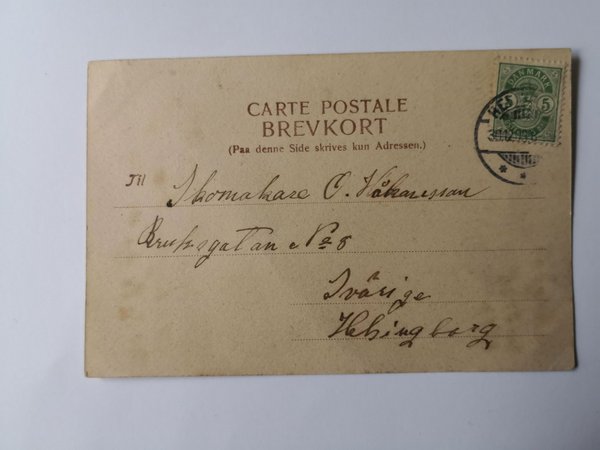 CARTE POSTALE
BREVKORT
(Paa denne Side skrives kun Adressen.)
DANMARK
5 5
Til Skomakare O. Håkansson
Bruksgatan No 8
Svärige
Helsingborg